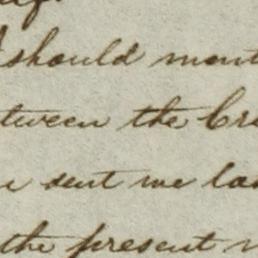 should ment
tween the Cri
sent me las
the present